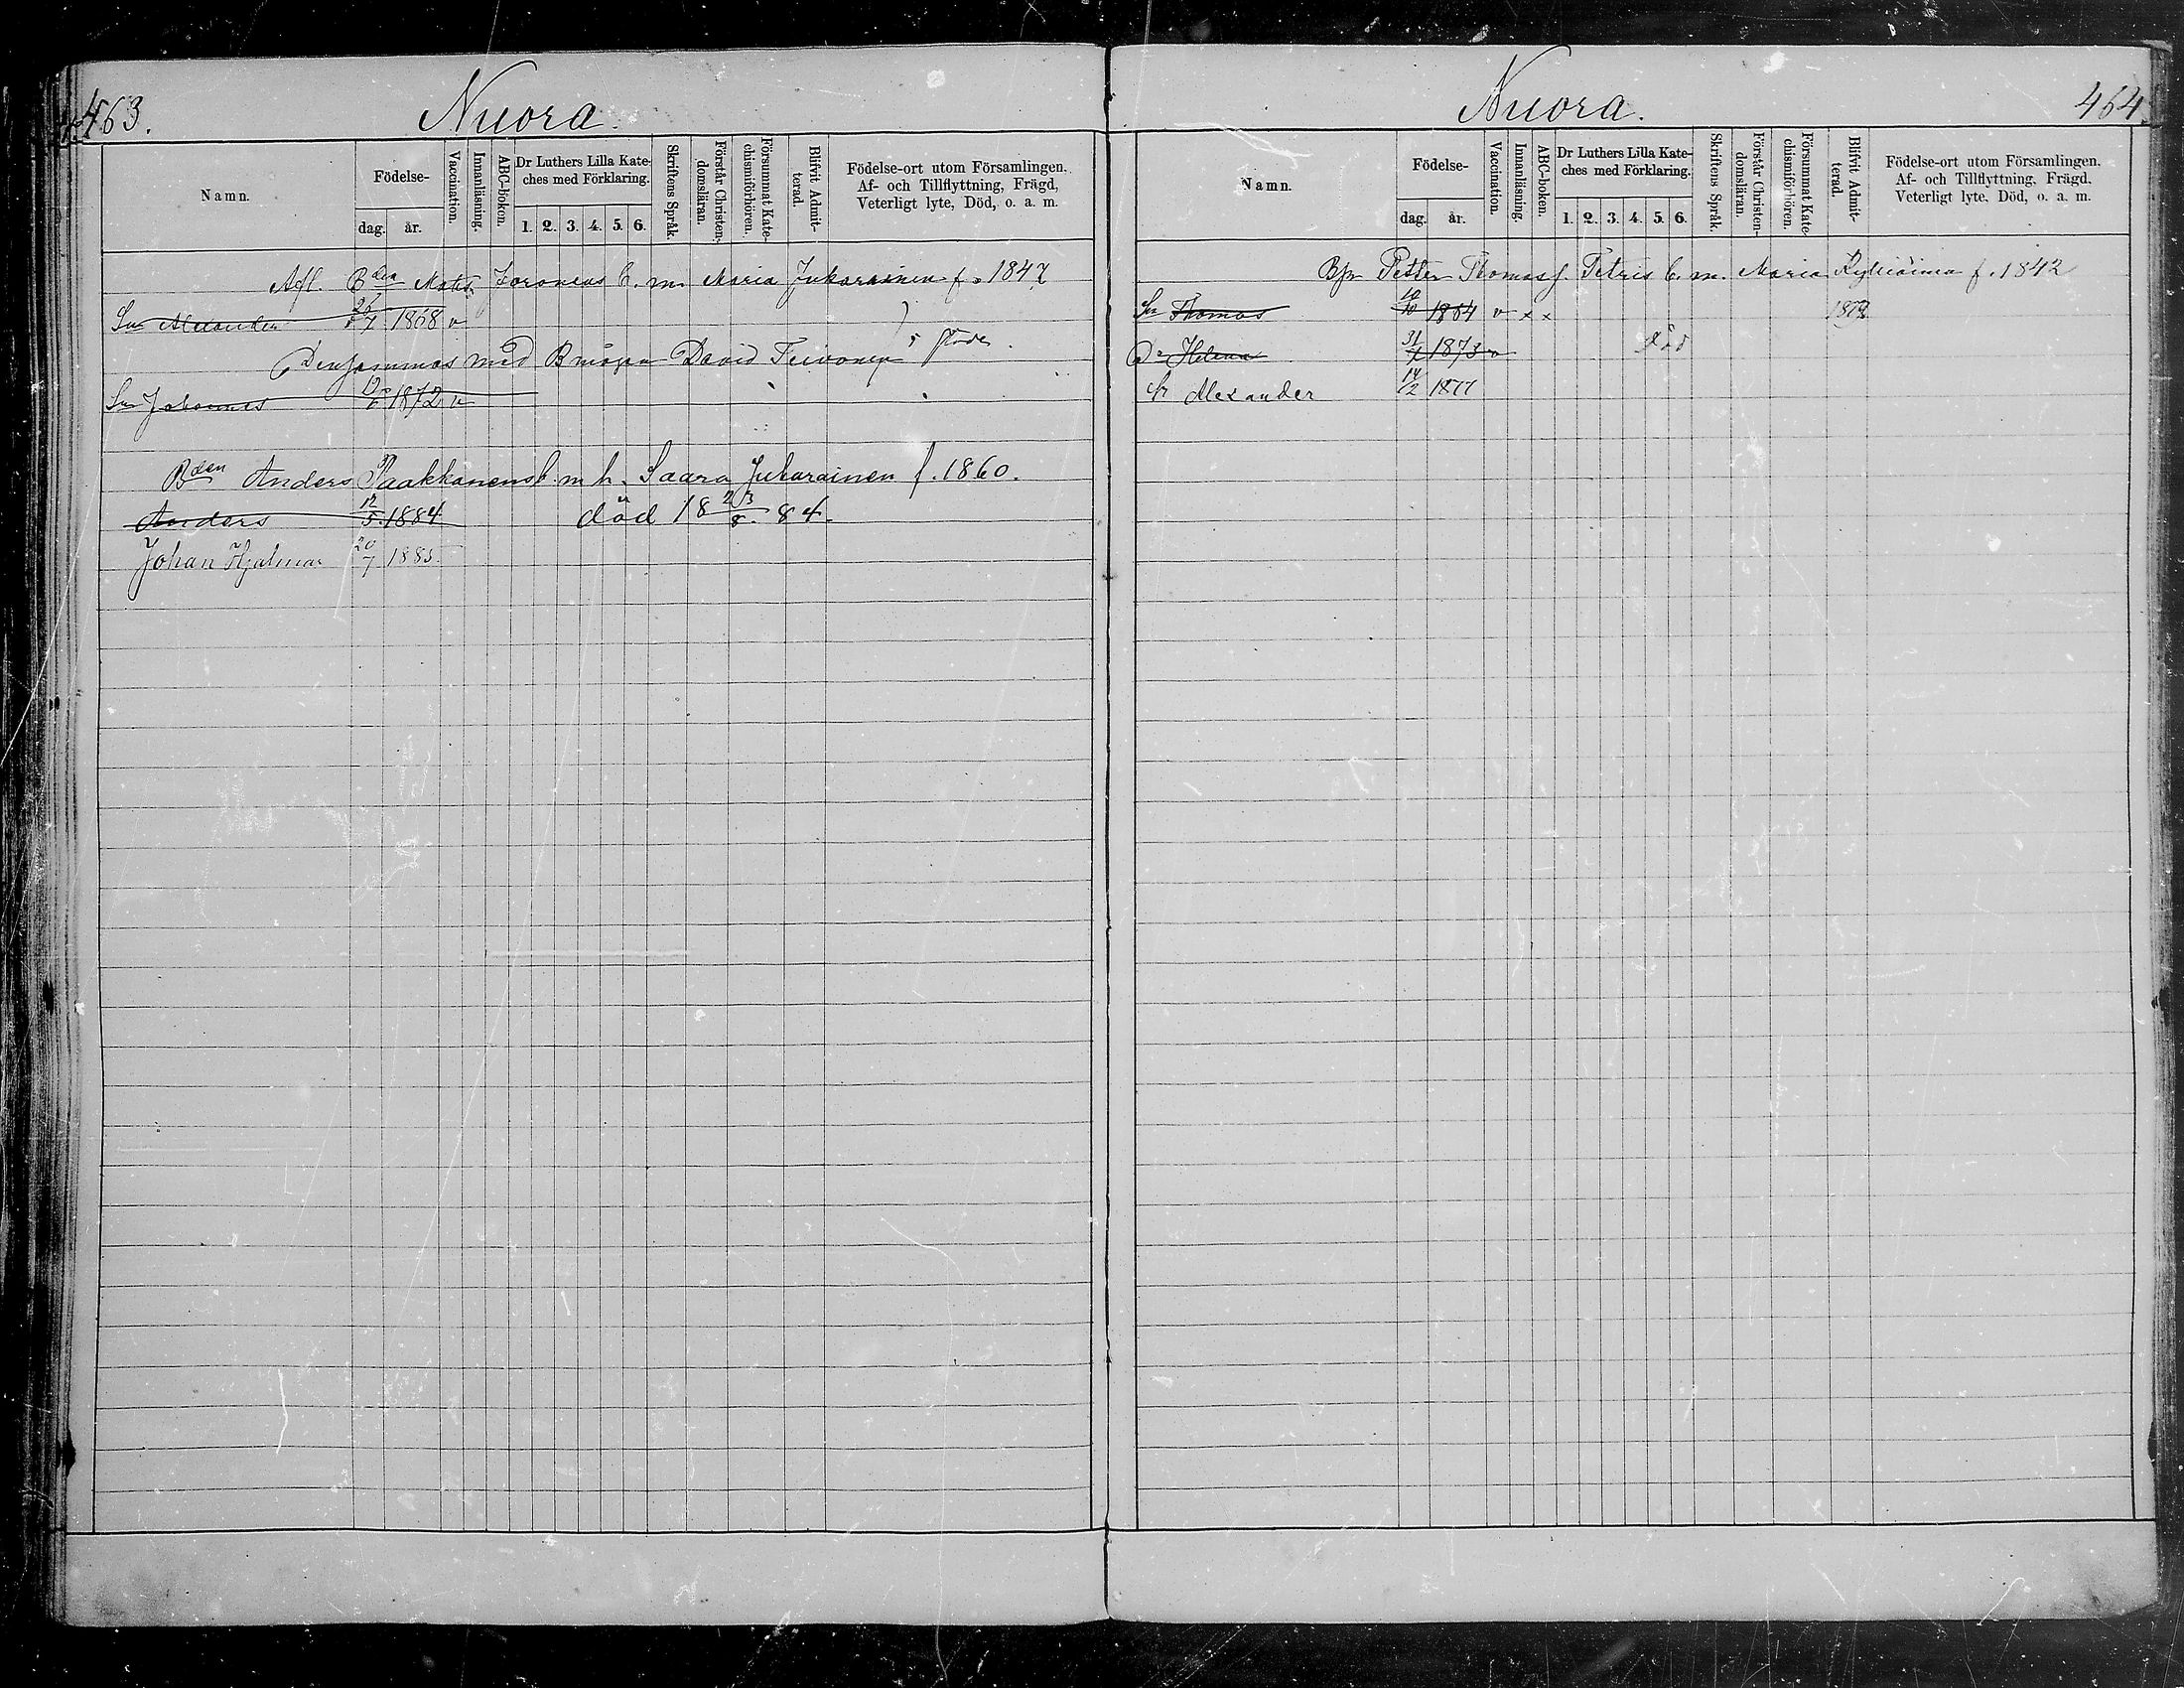 463.
Nuora.
Namn.
Födelse-
dag.
år.
Vaccination.
Innanläsning.
ABC-boken.
Dr Luthers Lilla Kate-
ches med Förklaring.
1. 2. 3. 4. 5. 6.
Skriftens Språk.
Förstår Christen-
domsläran.
Försummat Kate-
chismiförhören.
Blifvit Admit-
terad.
Födelse-ort utom Församlingen.
Af- och Tillflyttning, Frägd,
Veterligt lyte, Död, o. a. m.
Afl. Bden Matts b. m. Maria Jukarainen f. 1847
Sn Alexander 26/7 1868 v
Densammas med David Teivonen
Sn Johannes 1872 v
Bden Anders Paakkanens b. m h. Saara Jukarainen f. 1860.
Anders 12/5 1884 död 18 23/8 84.
Johan Hjalmar 20/7 1885.
Nuora.
464.
Namn.
Födelse-
dag.
år.
Vaccination.
Innanläsning.
ABC-boken.
Dr Luthers Lilla Kate-
ches med Förklaring.
1. 2. 3. 4. 5. 6.
Skriftens Språk.
Förstår Christen-
domsläran.
Försummat Kate-
chismiförhören.
Blifvit Admit-
terad.
Födelse-ort utom Församlingen.
Af- och Tillflyttning, Frägd.
Veterligt lyte, Död, o. a. m.
Petter Thomass. Petris b m. Maria f. 1842
Sn Thomas 10/10 1864 v x x
Dr Helena 1873 v död
Sn Alexander 14/2 1877